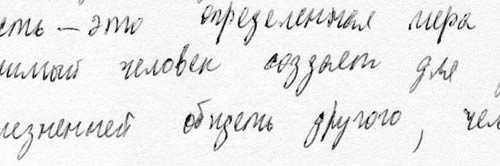 есть — это определенная мера
нимый человек создает для
лезненней обидеть другого, чем